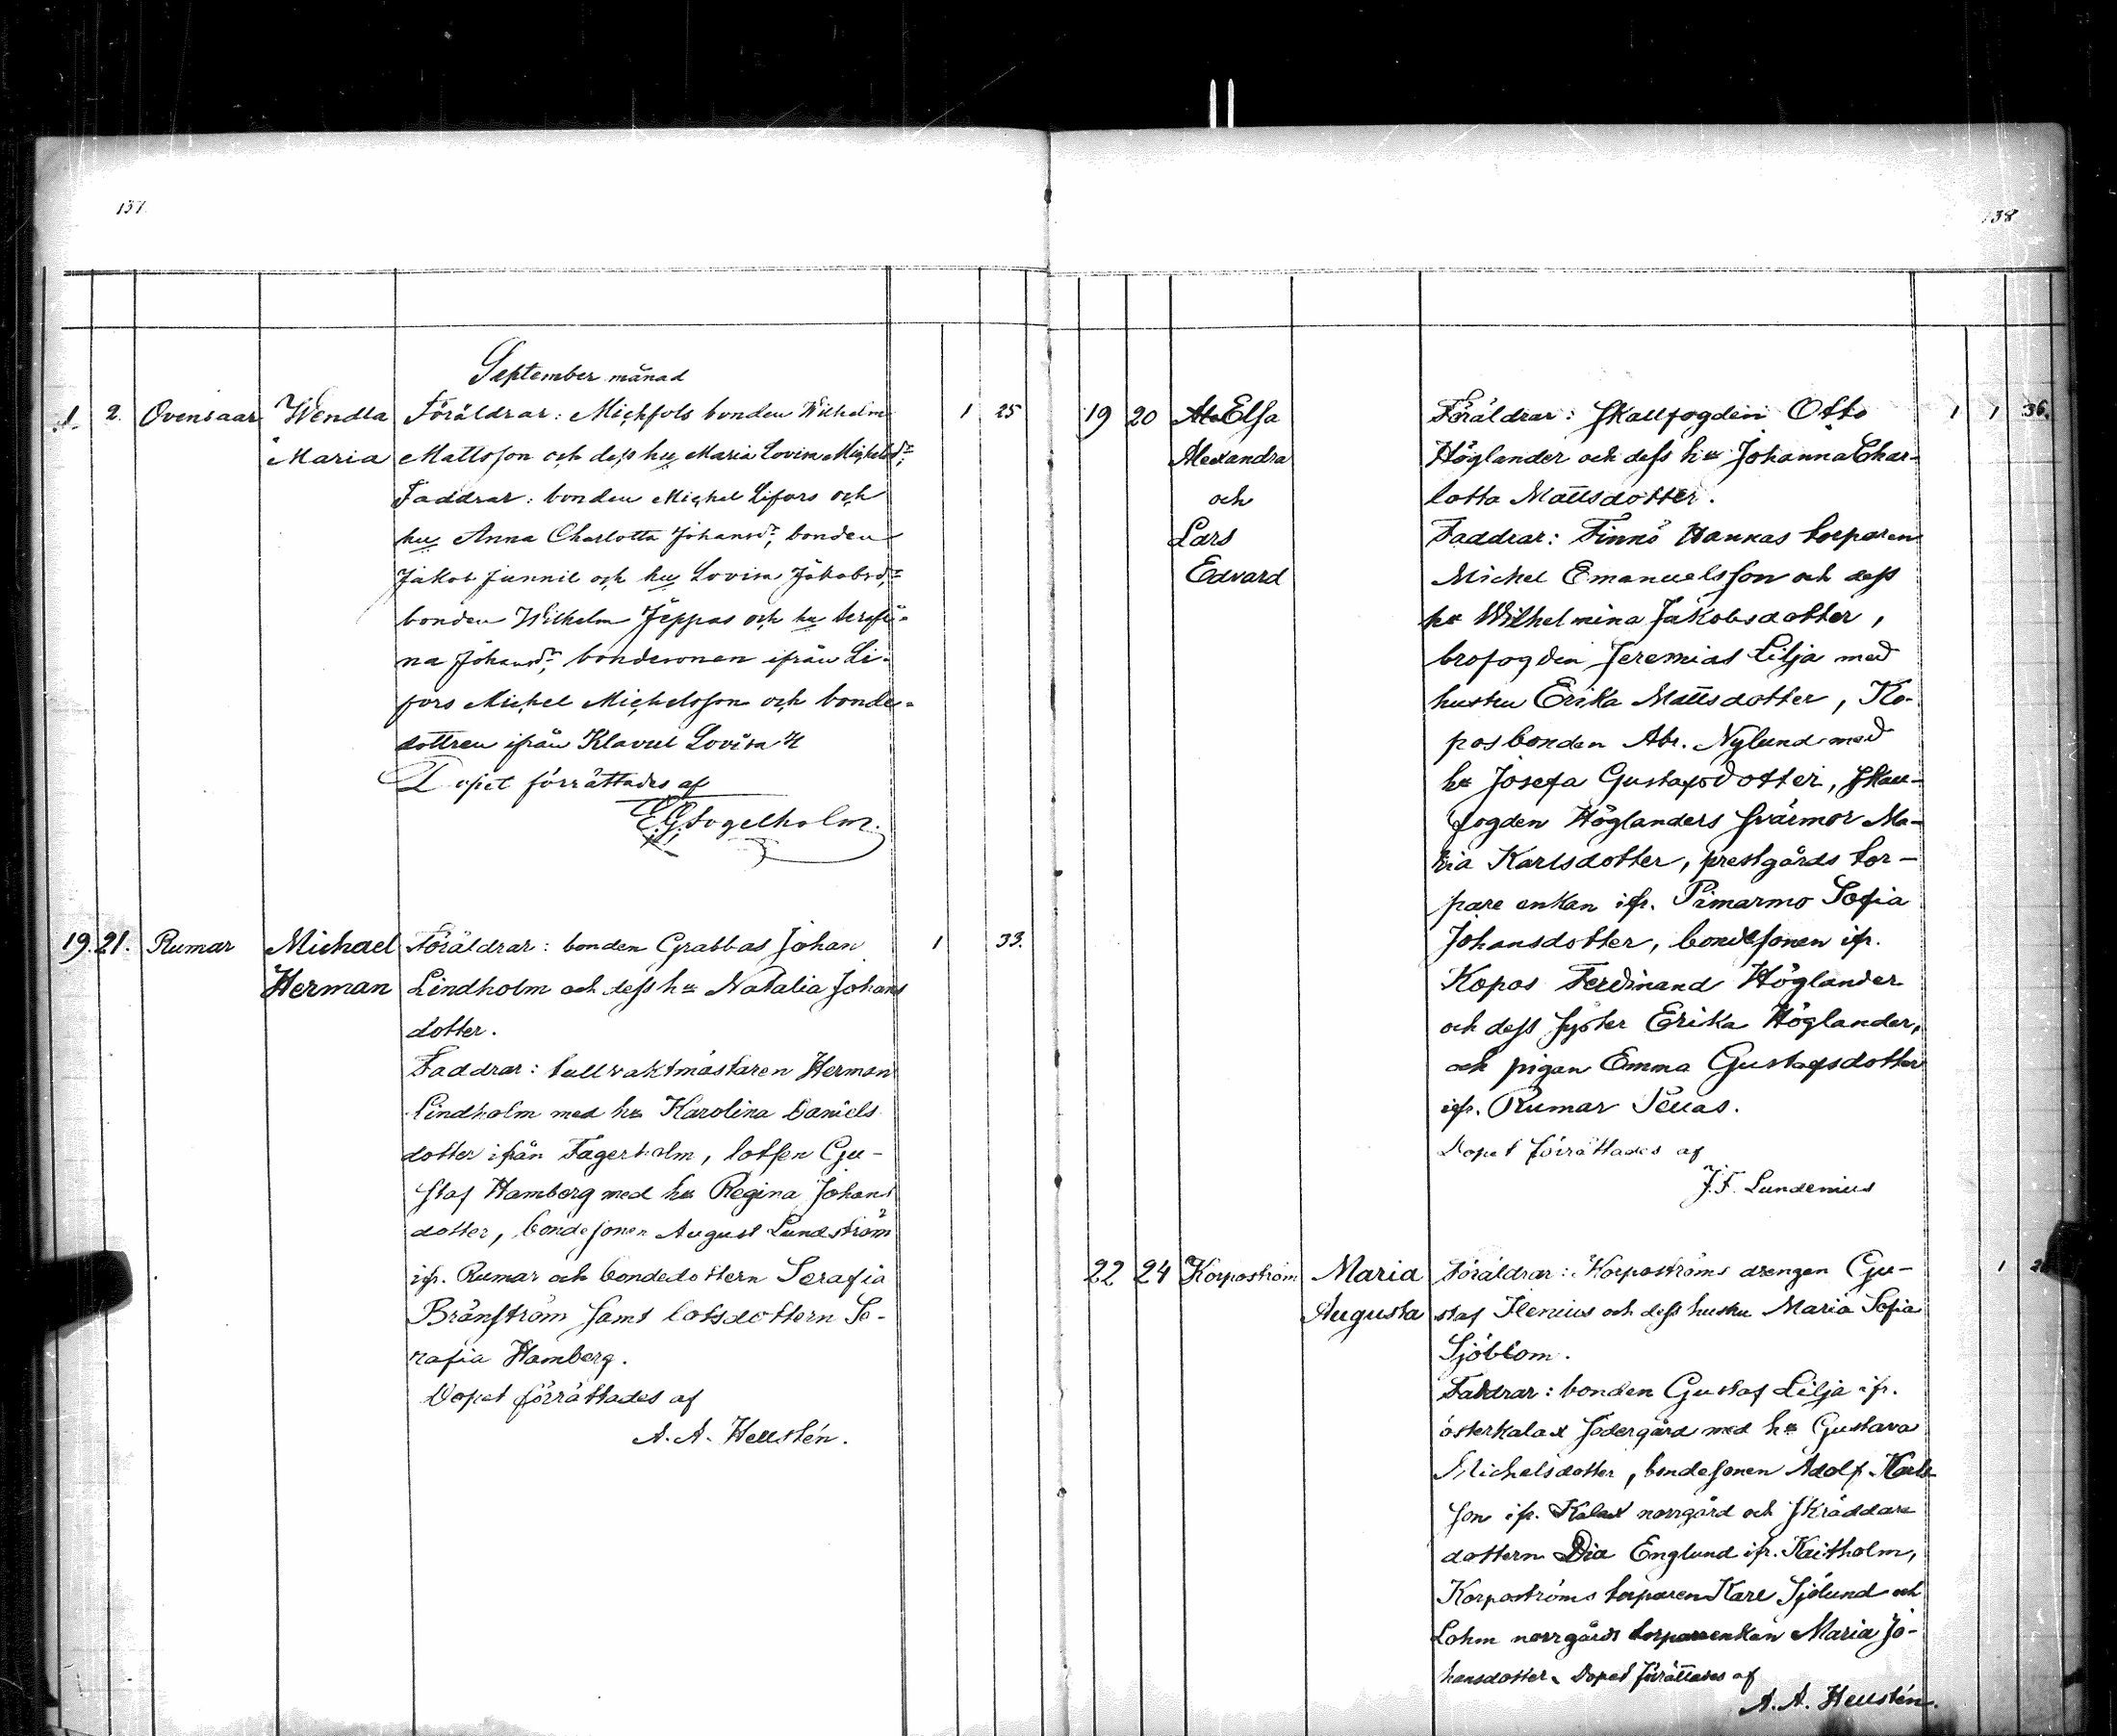 137.
September månad
1. 2. Ovensaar Wendla Föräldrar: Michfols bonden Wilhelm 1 25
Maria Mattsson och dess hu Maria Lovisa Michelsdr.
Faddrar: bonden Michel Lifors och
hu Anna Charlotta Johansdr, bonden
Jakob Junnil och hu Lovisa Jakobsdr
bonden Wilhelm Jeppas och hu Serafi-
na Johansdr, bondesonen ifrån Li-
fors Michel Michelsson och bonde-
dottren ifrån Klavul Lovisa
Dopet förrättades af
E.G. Fogelholm.
19. 21. Rumar Michael Föräldrar: bonden Grabbas Johan 1 33.
Herman Lindholm och dess hu Natalia Johans
dotter.
Faddrar: tullvaktmästaren Herman
Lindholm med hu Karolina Daniels
dotter ifrån Fagerholm, lotsen Gu-
staf Hamberg med hu Regina Johans
dotter, bondesonen August Lundström
ifr. Rumar och bondedottern Serafia
Bränström samt lotsdottern Se-
rafia Hamberg.
Dopet förrättades af
A. A. Hellstén.
138
19 20 Elsa Föräldrar: Skallfogden Otto 1 1 36.
Alexandra Höglander och dess hu Johanna Char-
och lotta Mattsdotter.
Lars Faddrar: Finnö Hannas torparen
Edvard Michel Emanuelsson och dess
hu Wilhelmina Jakobsdotter,
brofogden Jeremias Lilja med
hustru Erika Mattsdotter, Ko-
pos bonden Abr. Nylund med
hu Josefa Gustafsdotter, Skall-
fogden Höglanders svärmor Ma-
ria Karlsdotter, prestgårds tor-
pare enkan ifr. Pimarmo Sofia
Johansdotter, bondesonen ifr.
Kopos Ferdinand Höglander
och dess syster Erika Höglander,
och pigan Emma Gustafsdotter
ifr. Rumar Pellas.
Dopet förrättades af
J.F. Lundenius
22 24 Korpoström Maria Föräldrar: Korpoströms drengen Gu- 1
Augusta staf Ilenius och dess hustru Maria Sofia
Sjöblom.
Faddrar: bonden Gustaf Lilja ifr.
österkalax södergård med hu Gustava
Michelsdotter, bondesonen Adolf Karls-
son ifr. Kalax norrgård och skräddare
dottern Dia Englund ifr. Kaitholm,
Korpoströms torparen Karl Sjölund och
Lohm norrgårds torpareenkan Maria Jo-
hansdotter. Dopet förättades af
A. A. Hellstén.